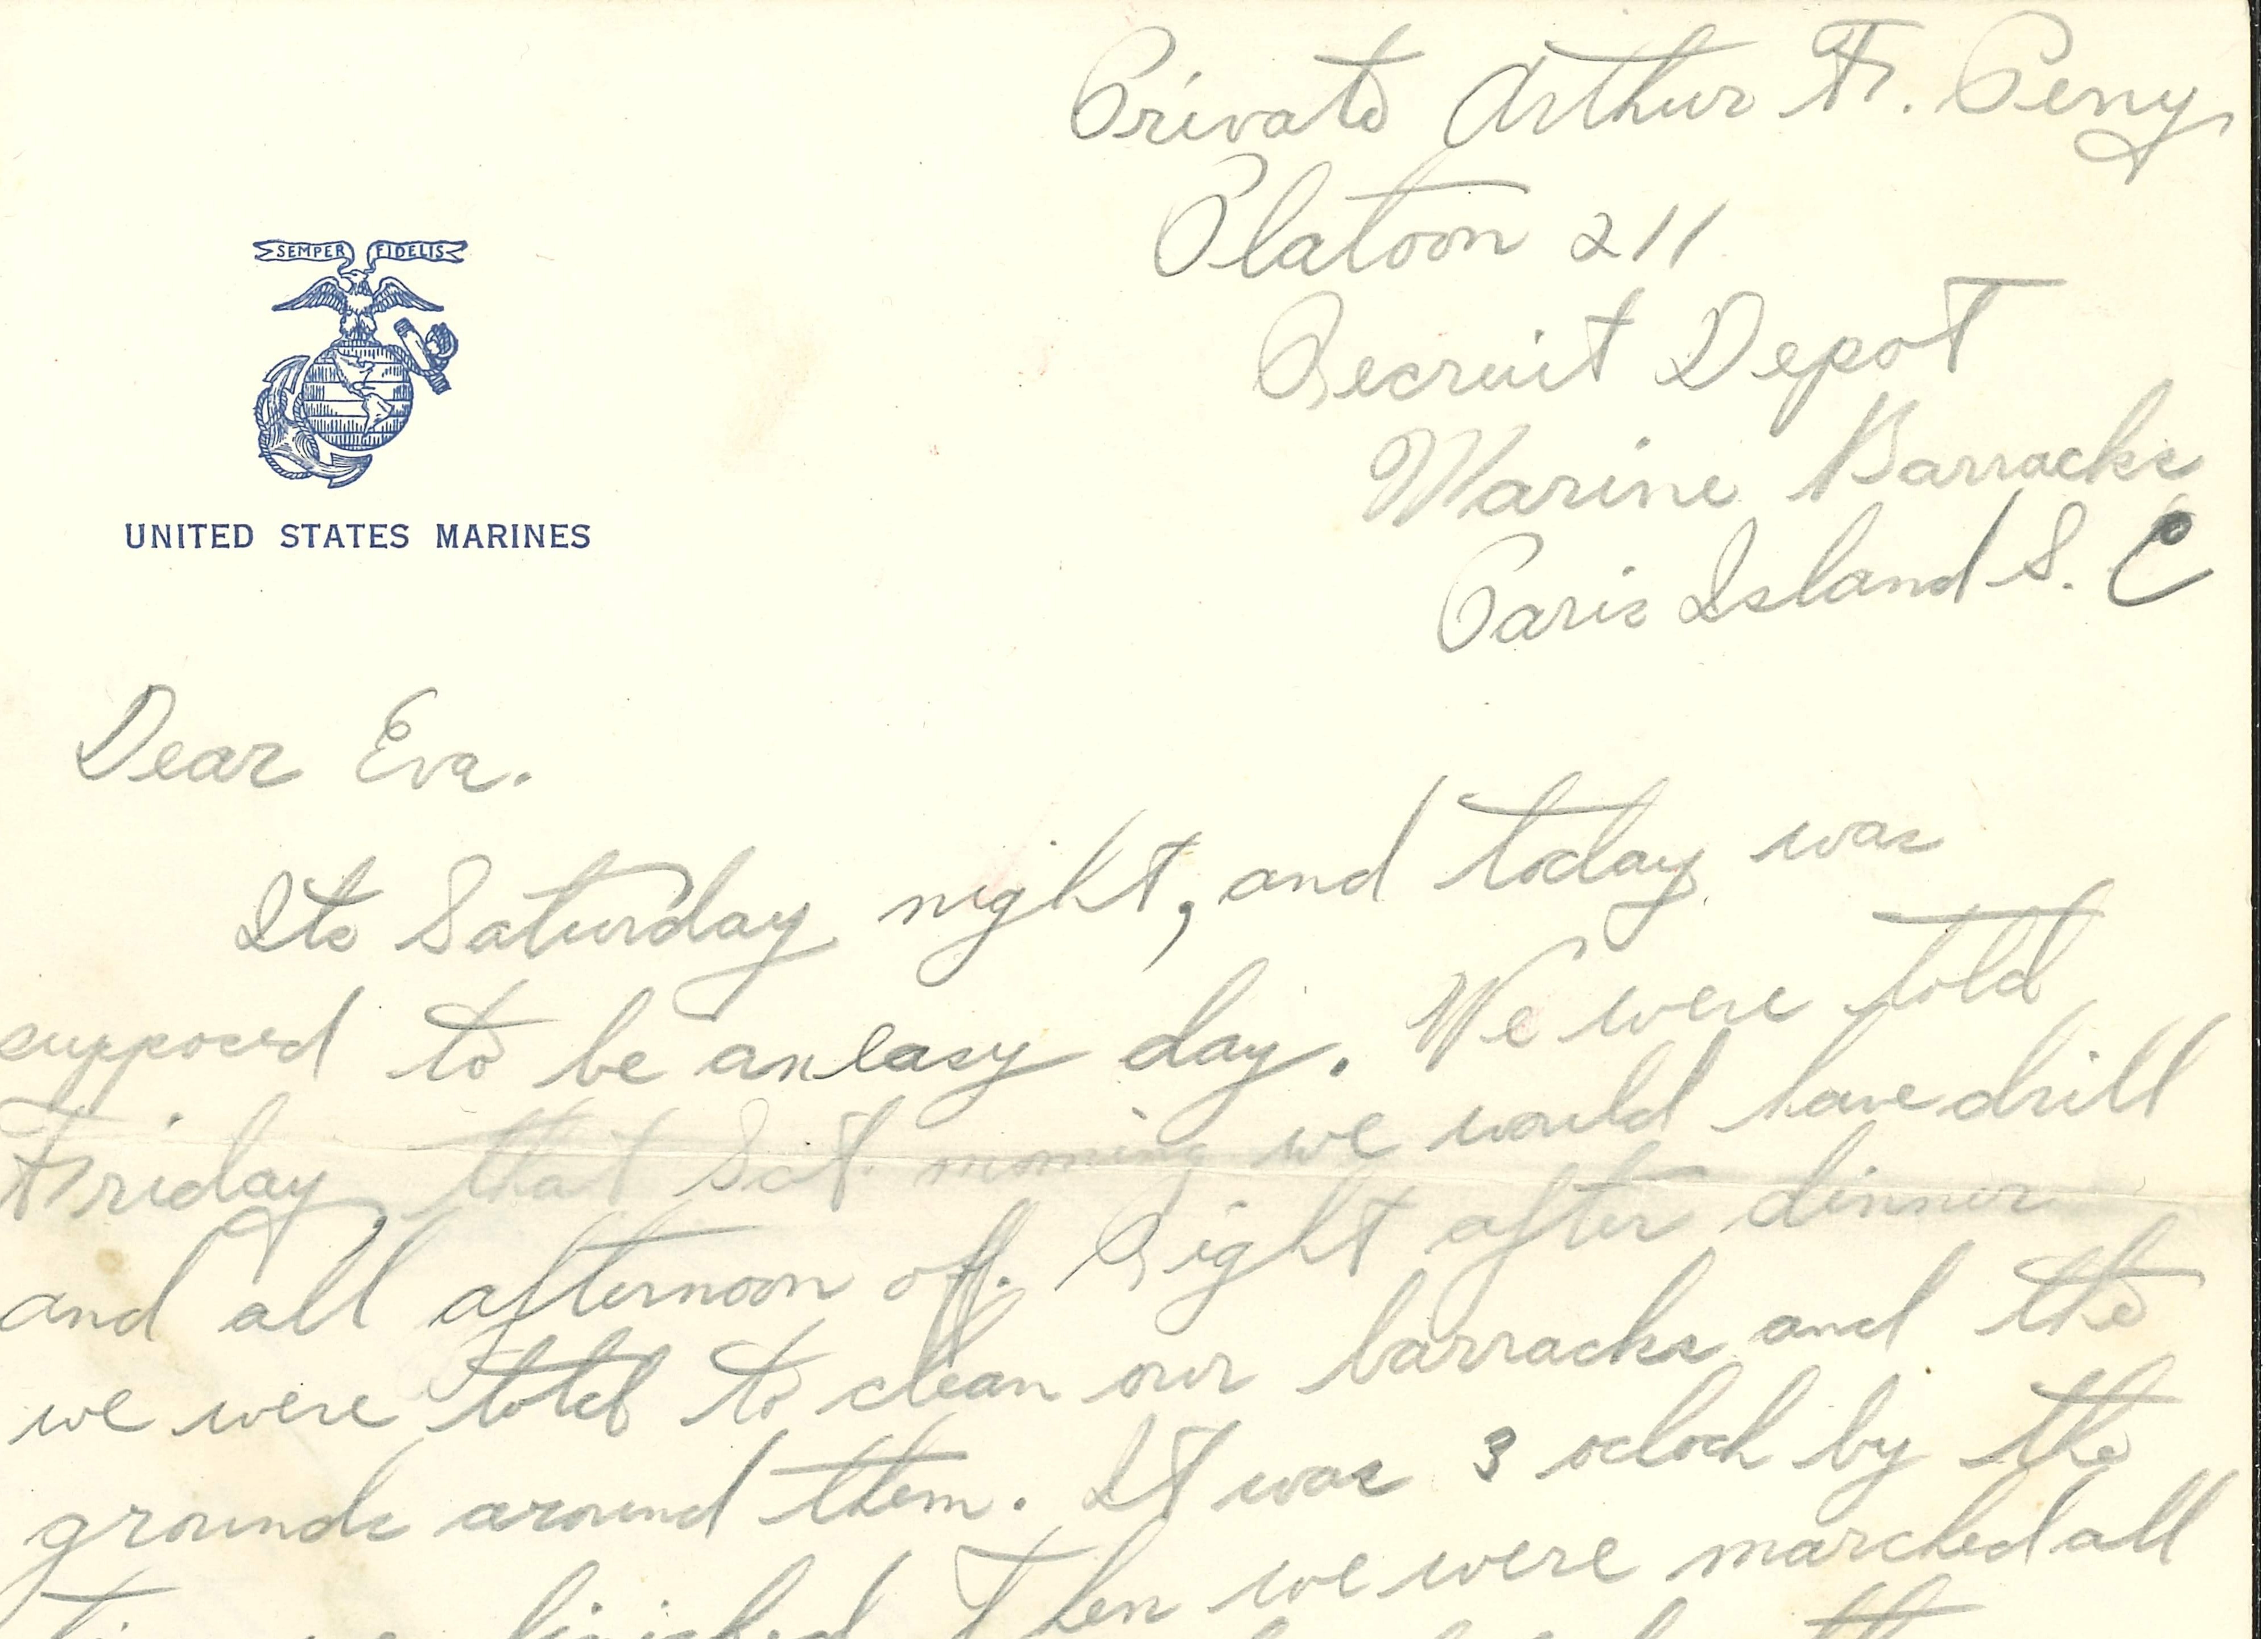 Private Arthur F. Perry,
Platoon 211
Recruit Depot
SEMPER FIDELIS
Marine Barracks
UNITED STATES MARINES
Paris Island S. C
Dear Eva.
Its Saturday night, and today was
supposed to be an easy day. We were told
Friday that Sat. morning we would have drill
and all afternoon off. Right after dinner
we were told to clean our barracks and the
grounds around them. It was 3 oclock by the
time we finished Then we were marched all